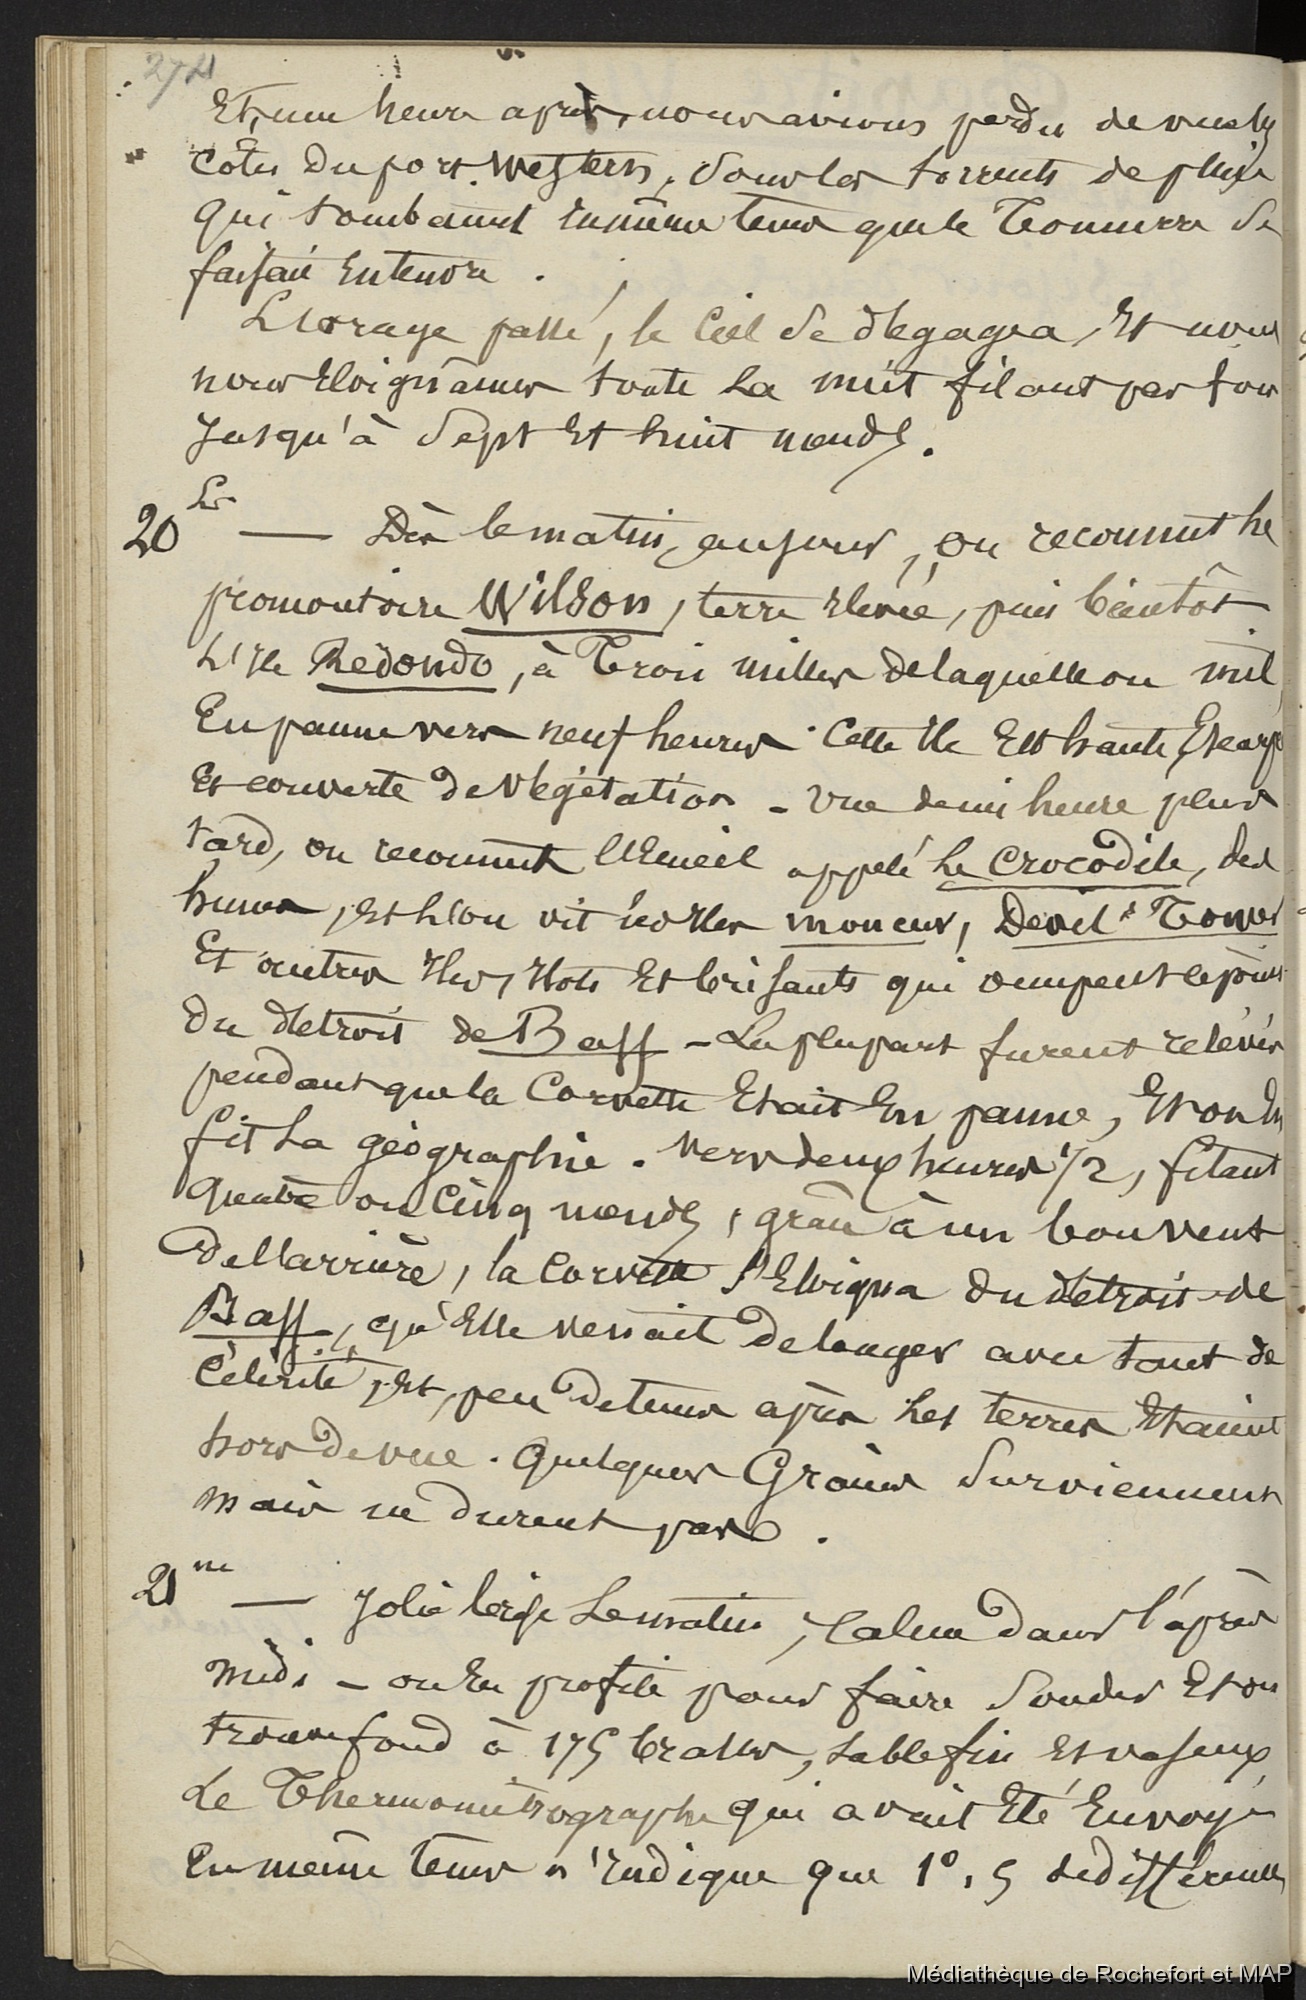 274
Et, une heure après, nous avions perdu de vue les
côtes du port Western, sous les torrents de pluie
qui tombaient en même tems que le Tonnerre se
faisait entendre.
L'orage passé, le Ciel se dégagea, Et nous
nous Eloignâmes toute la nuit filant par fois
jusqu'à Sept Et huit nœuds.
20 Lr — Dès le matin, au jour, on reconnut le
promontoire Wilson, terre Elevée, puis bientôt
L'Ile Redondo, à Trois milles de laquelle on mit
En panne vers neuf heures. Cette Ile Est haute, Escarpé
Et couverte de Végétation - Une demi heure plus
tard, on reconnut l'Ecueil appelé Le Crocodile, des
hunes, Et l'on vit les Iles moncur, Devil's Tower
Et autres Iles, Ilots Et brisants qui occupent
du détroit de Bass - La plupart furent relevés
pendant que la Corvette Etait En panne, Et on En
fit La géographie. Vers deux heures 1/2, filant
quatre ou Cinq nœuds, grâce à un bon vent
de l'arrière, la Corvette s'Eloigna du détroit de
Bass, qu'Elle venait de longer avec tant de
Célérité, Et, peu de tems après Les terres Etaient
hors de vue. Quelques Grains Surviennent
mais ne durent pas.
21 me — Jolie brise Le matin, Calme dans l'après
midi - on En profite pour faire Sonder Et on
trouve fond à 175 brasses, Sable fin Et vaseux,
Le Thermométrographe qui avait Eté Envoyé
En même tems n'Indique que 1°,5 de différence
Médiathèque de Rochefort et MAP